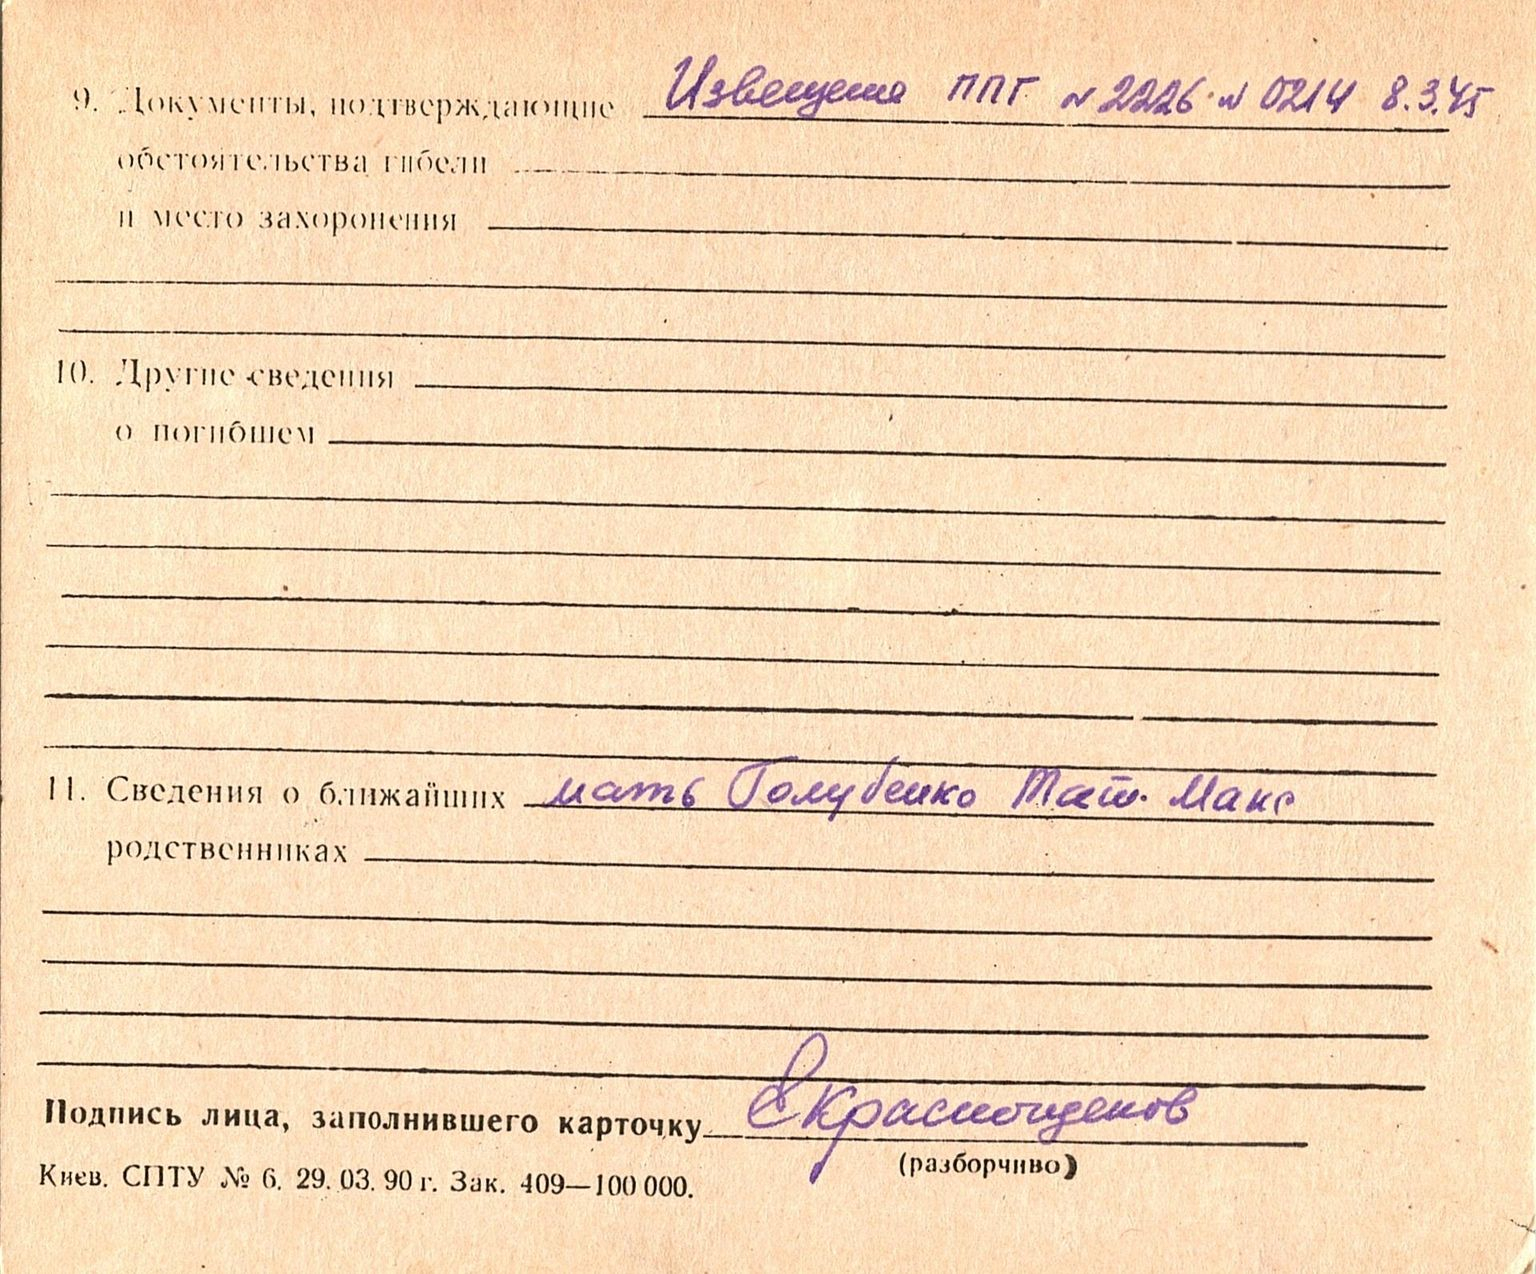 9. Документы, подтверждающие Извещение ППГ № 2226 № 0214 8.3.45
обстоятельства гибели
и место захоронения
10. Другие сведения
о погибшем
11. Сведения о ближайших мать Голубенко Тат. Макс
родственниках
Подпись лица, заполнившего карточку Е Краснощеков
(разборчиво)
Киев. СПТУ № 6. 29. 03. 90 г. Зак. 409—100 000.